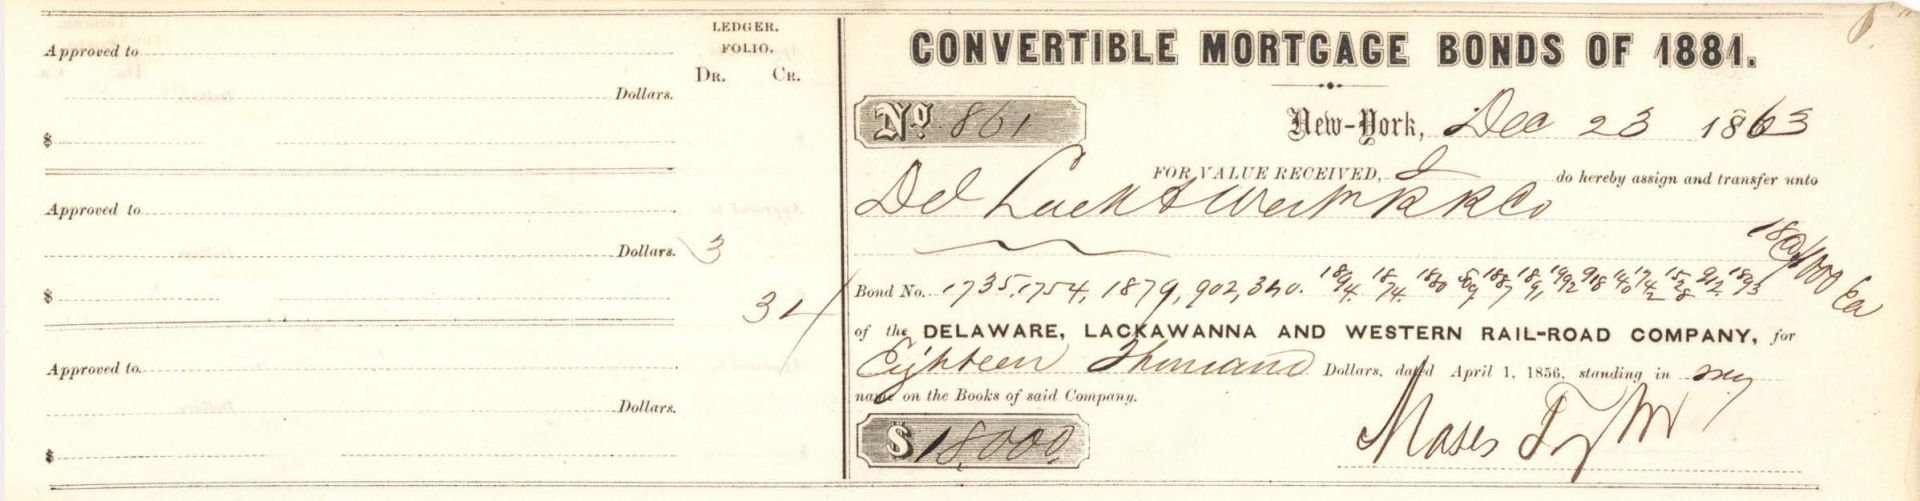 LEDGER.
Approved to
FOLIO.
DR. CR.
Dollars.
$
Approved to
Dollars. 3
$
34
Approved to
Dollars.
$
CONVERTIBLE MORTGAGE BONDS OF 1881.
No. 861 New-York, Dec 23 1863
FOR VALUE RECEIVED, I do hereby assign and transfer unto
Del Lack & Westn R R Co
18 @ 1000 Ea
Bond No. 1735, 1754, 1879, 902, 340. 1894. 1874. 1880 1887 1891 1492 918 1742 1528 912. 1893
of the DELAWARE, LACKAWANNA AND WESTERN RAIL-ROAD COMPANY, for
Eighteen Thousand Dollars, dated April 1, 1856, standing in my
name on the Books of said Company.
$ 18,000. Moses Taylor